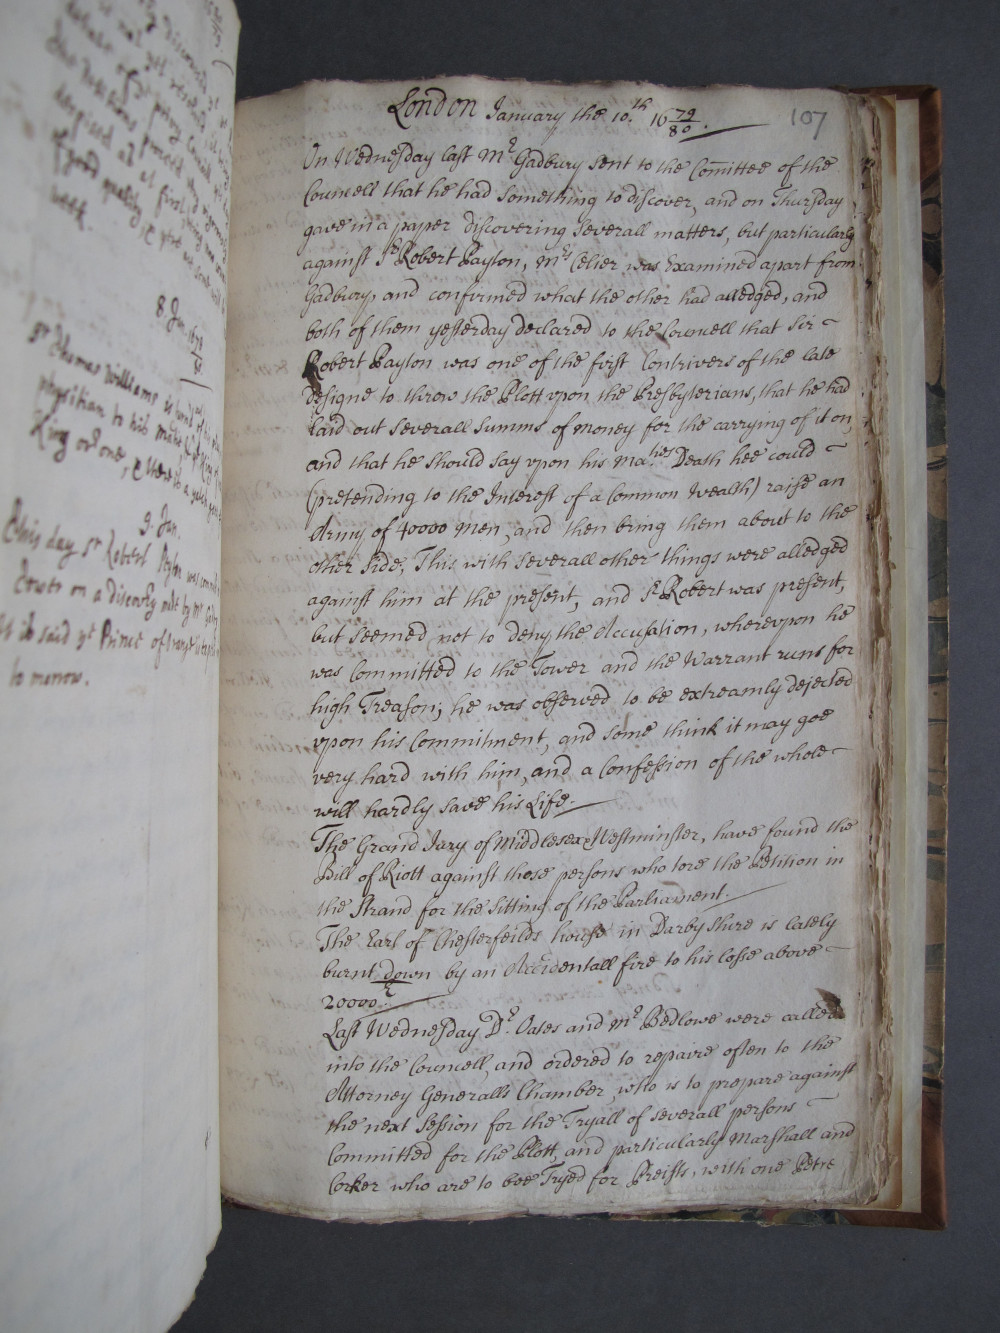 8. Jan. 1679/80
Sr Thomas Williams is
physitian to his
King
9. Jan.
This day Sr Robert Peyton was
Tower on a discovery made by Mr
it is said yt Prince of
to morrow.
London January the 10.th 1679/80.
107
On Wednesday last Mr. Gadbury sent to the Comittee of the
Councell that he had something to discover, and on Thursday
gave in a paper discovering severall matters, but particularly
against Sr. Robert Payton, Mrs Celier was Examined apart from
Gadbury, and confirmed what the other had alledged, and
both of them yesterday declared to the Councell that Sir
Robert Payton was one of the first Contrivers of the late
designe to throw the Plott upon the Presbyterians, that he had
laid out severall Summs of money for the carrying of it on,
and that he should say vpon his Ma.ties Death hee could
(pretending to the Interest of a Common Wealth) raise an
Army of 40000 men, and then bring them about to the
other side; This with severall other things were alledged
against him at the present, and Sr. Robert was present,
but seemed not to deny the Accusation, wherevpon he
was Committed to the Tower and the Warrant runs for
high Treason; he was observed to be extreamly dejected
vpon his Commitment, and some think it may goe
very hard with him, and a Confession of the whole
will hardly save his Life.
The Grand Jury of Middlesex & Westminster, have found the
Bill of Riott against those persons who tore the Petition in
the Strand for the sitting of the Parliament.
The Earl of Chesterfeilds house in Darbyshire is lately
burnt down by an Accidentall fire to his losse above
20000.£
Last Wednesday Dr. Oates and Mr. Bedlowe were called
into the Councell, and ordered to repaire often to the
Attorney Generalls Chamber, who is to prepare against
the next Session for the Tryall of severall persons
Committed for the Plott, and particularly Marshall and
Corker who are to bee Tryed for Preists, with one Petre